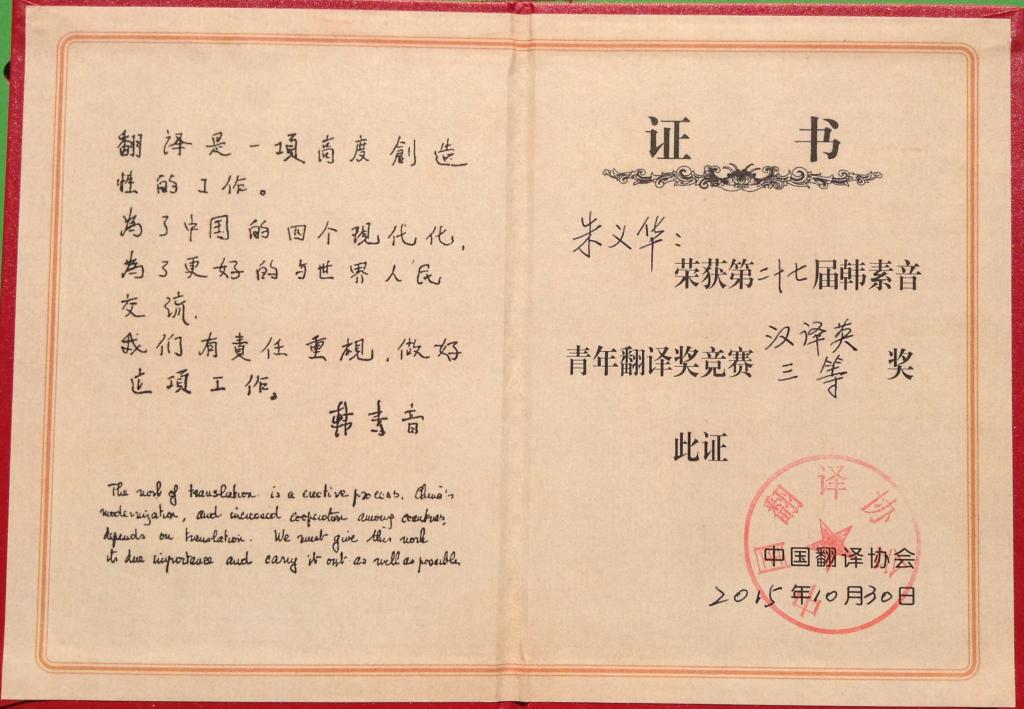 翻译是一項高度創造
性的工作。
为了中国的四个现代化，
为了更好的与世界人民
交流，
我们有責任重視，做好
这项工作。
韩素音
The work of translation is a creative process. China's
modernization, and increased cooperation among countries,
depends on translation. We must give this work
its due importance and carry it out as well as possible.
证书
朱义华：
荣获第二十七届韩素音
青年翻译奖竞赛 汉译英三等 奖
此证
中国翻译协会
中国翻译协会
2015年10月30日